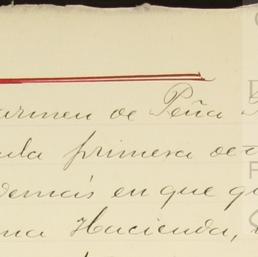 armen de Peña
ula primera de
demás en que
na Hacienda,